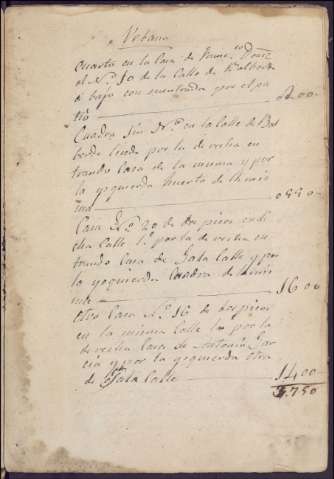 Urbana
Cuarto en la Casa de
el N.º 10 de la Calle de
a bajo con su entrada por el pa
tio 200
Cuadra sin N.º en la Calle de
linda por la derecha en
trando Casa de la misma y por
la yzquierda huerta de
Casa N.º 20 de dos pisos en di
cha Calle l.ª por la derecha en
trando Casa de Calle y por
la yzquierda Cuadra de
1600
Otra Casa N.º 16 de dos pisos
en la misma Calle por la
derecha Casa de Antonio Gar
cia y por la yzquierda otra
de Calle 1400
3.750